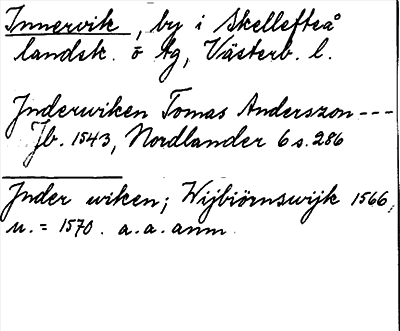 Innervik, by i Skellefteå
landsk. o tg, Västerb. l.
Jnderwiken Tomas Anderszon ---
Jb. 1543, Nordlander 6 s. 286
Jnder wiken; Wijbiörnswijk 1566,
u. = 1570. a.a. anm